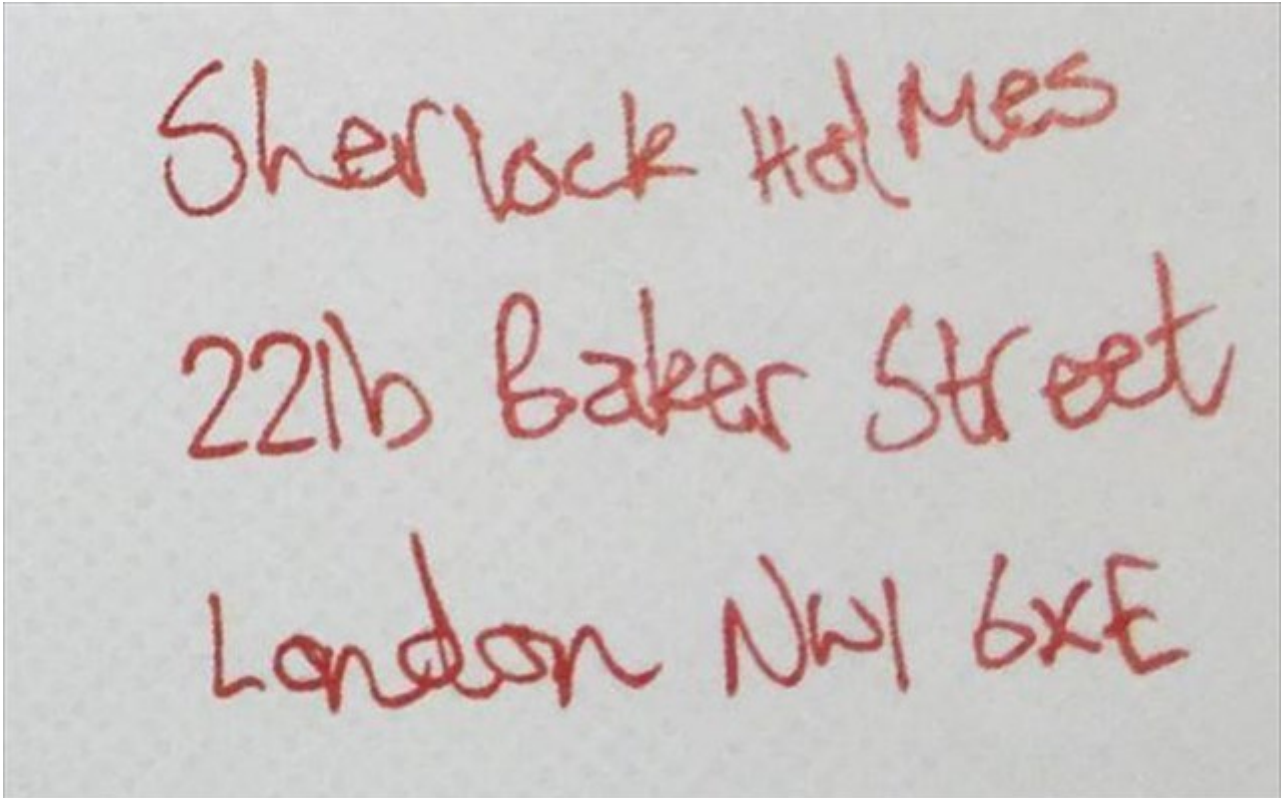 Sherlock Holmes
221b Baker Street
London NW1 6XE